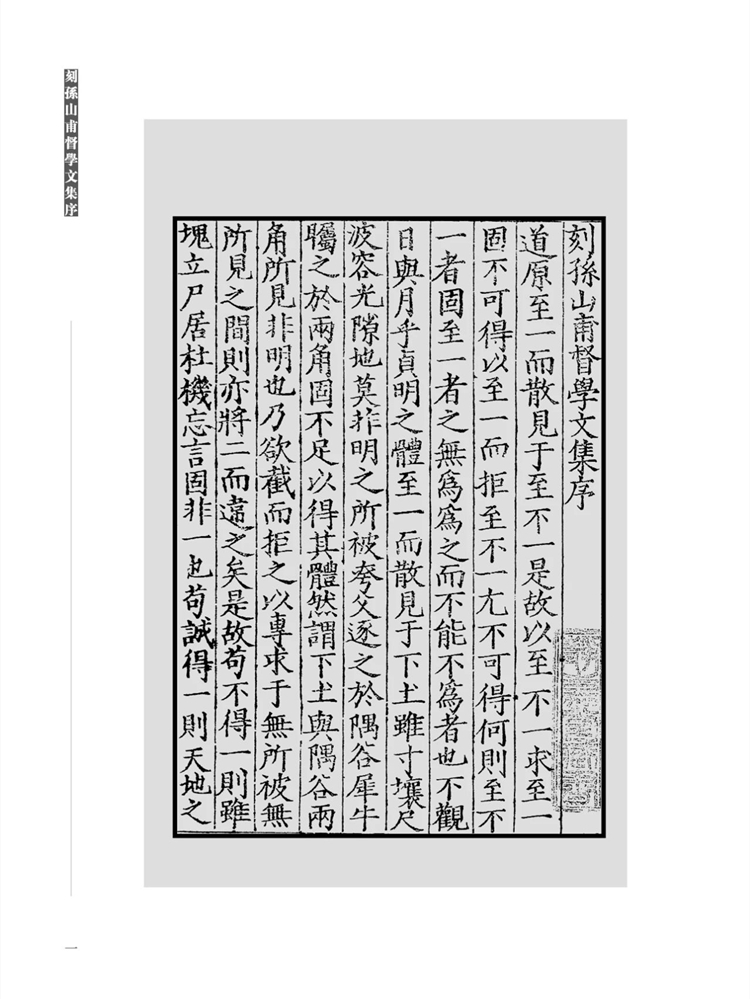 刻孫山甫督學文集序
刻孫山甫督學文集序
道原至一而散見于至不一是故以至不一求至一
固不可得以至一而拒至不一尤不可得何則至不
一者固至一者之無爲爲之而不能不爲者也不觀
日與月乎貞明之體至一而散見于下土雖寸壤尺
波容光隙地莫非明之所被夸父逐之於隅谷犀牛
矚之於兩角固不足以得其體然謂下土與隅谷兩
角所見非明也乃欲截而拒之以專求于無所被無
所見之間則亦將二而違之矣是故苟不得一則雖
塊立尸居杜機忘言固非一也苟誠得一則天地之
一